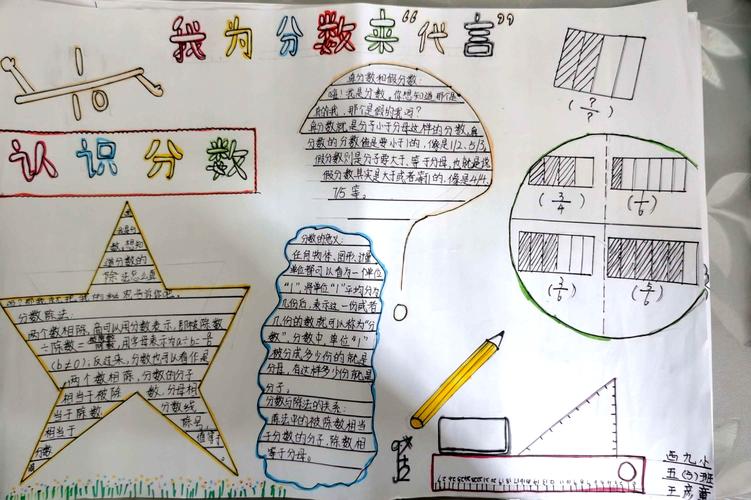 我为分数来“代言”
1
10
认识分数
真分数和假分数:
嗨!我是分数,你想知道那个是
真的我,那个是假的我吗?
真分数就是分子小于分母这样的分数,真
分数的分数值是要小于1的,像是1/2、5/3,
假分数则是分子要大于、等于分母,也就是说
假分数其实是大于或者等1的,像是4/4、
7/5等。
(?/?)
(3/4)
(1/6)
(3/6)
(5/6)
数,想知
道分数的
除法怎么
分数除法:
两个数相除,商可以用分数表示,即被除数
÷除数=用字母表示为a÷b=a/b
(b≠0);反过来,分数也可以看作是
两个数相除,分数的分子
相当于被除数,分数母相
当于除数,分数线
相当于除号,
分数值等于
分数的意义:
任何物体、图形、计量
单位都可以看为一个单位
“1”,将单位“1”平均分为
几份后,表示这一份或者
几份的数就可以称为“分
数”,分数中,单位“1”
被分成多少份的就是
分母,有这样多少份就是
分子。
分数与除法的关系:
除法中的被除数相当
于分数的分子,除数相
等于分母。
西九小
五(3)班